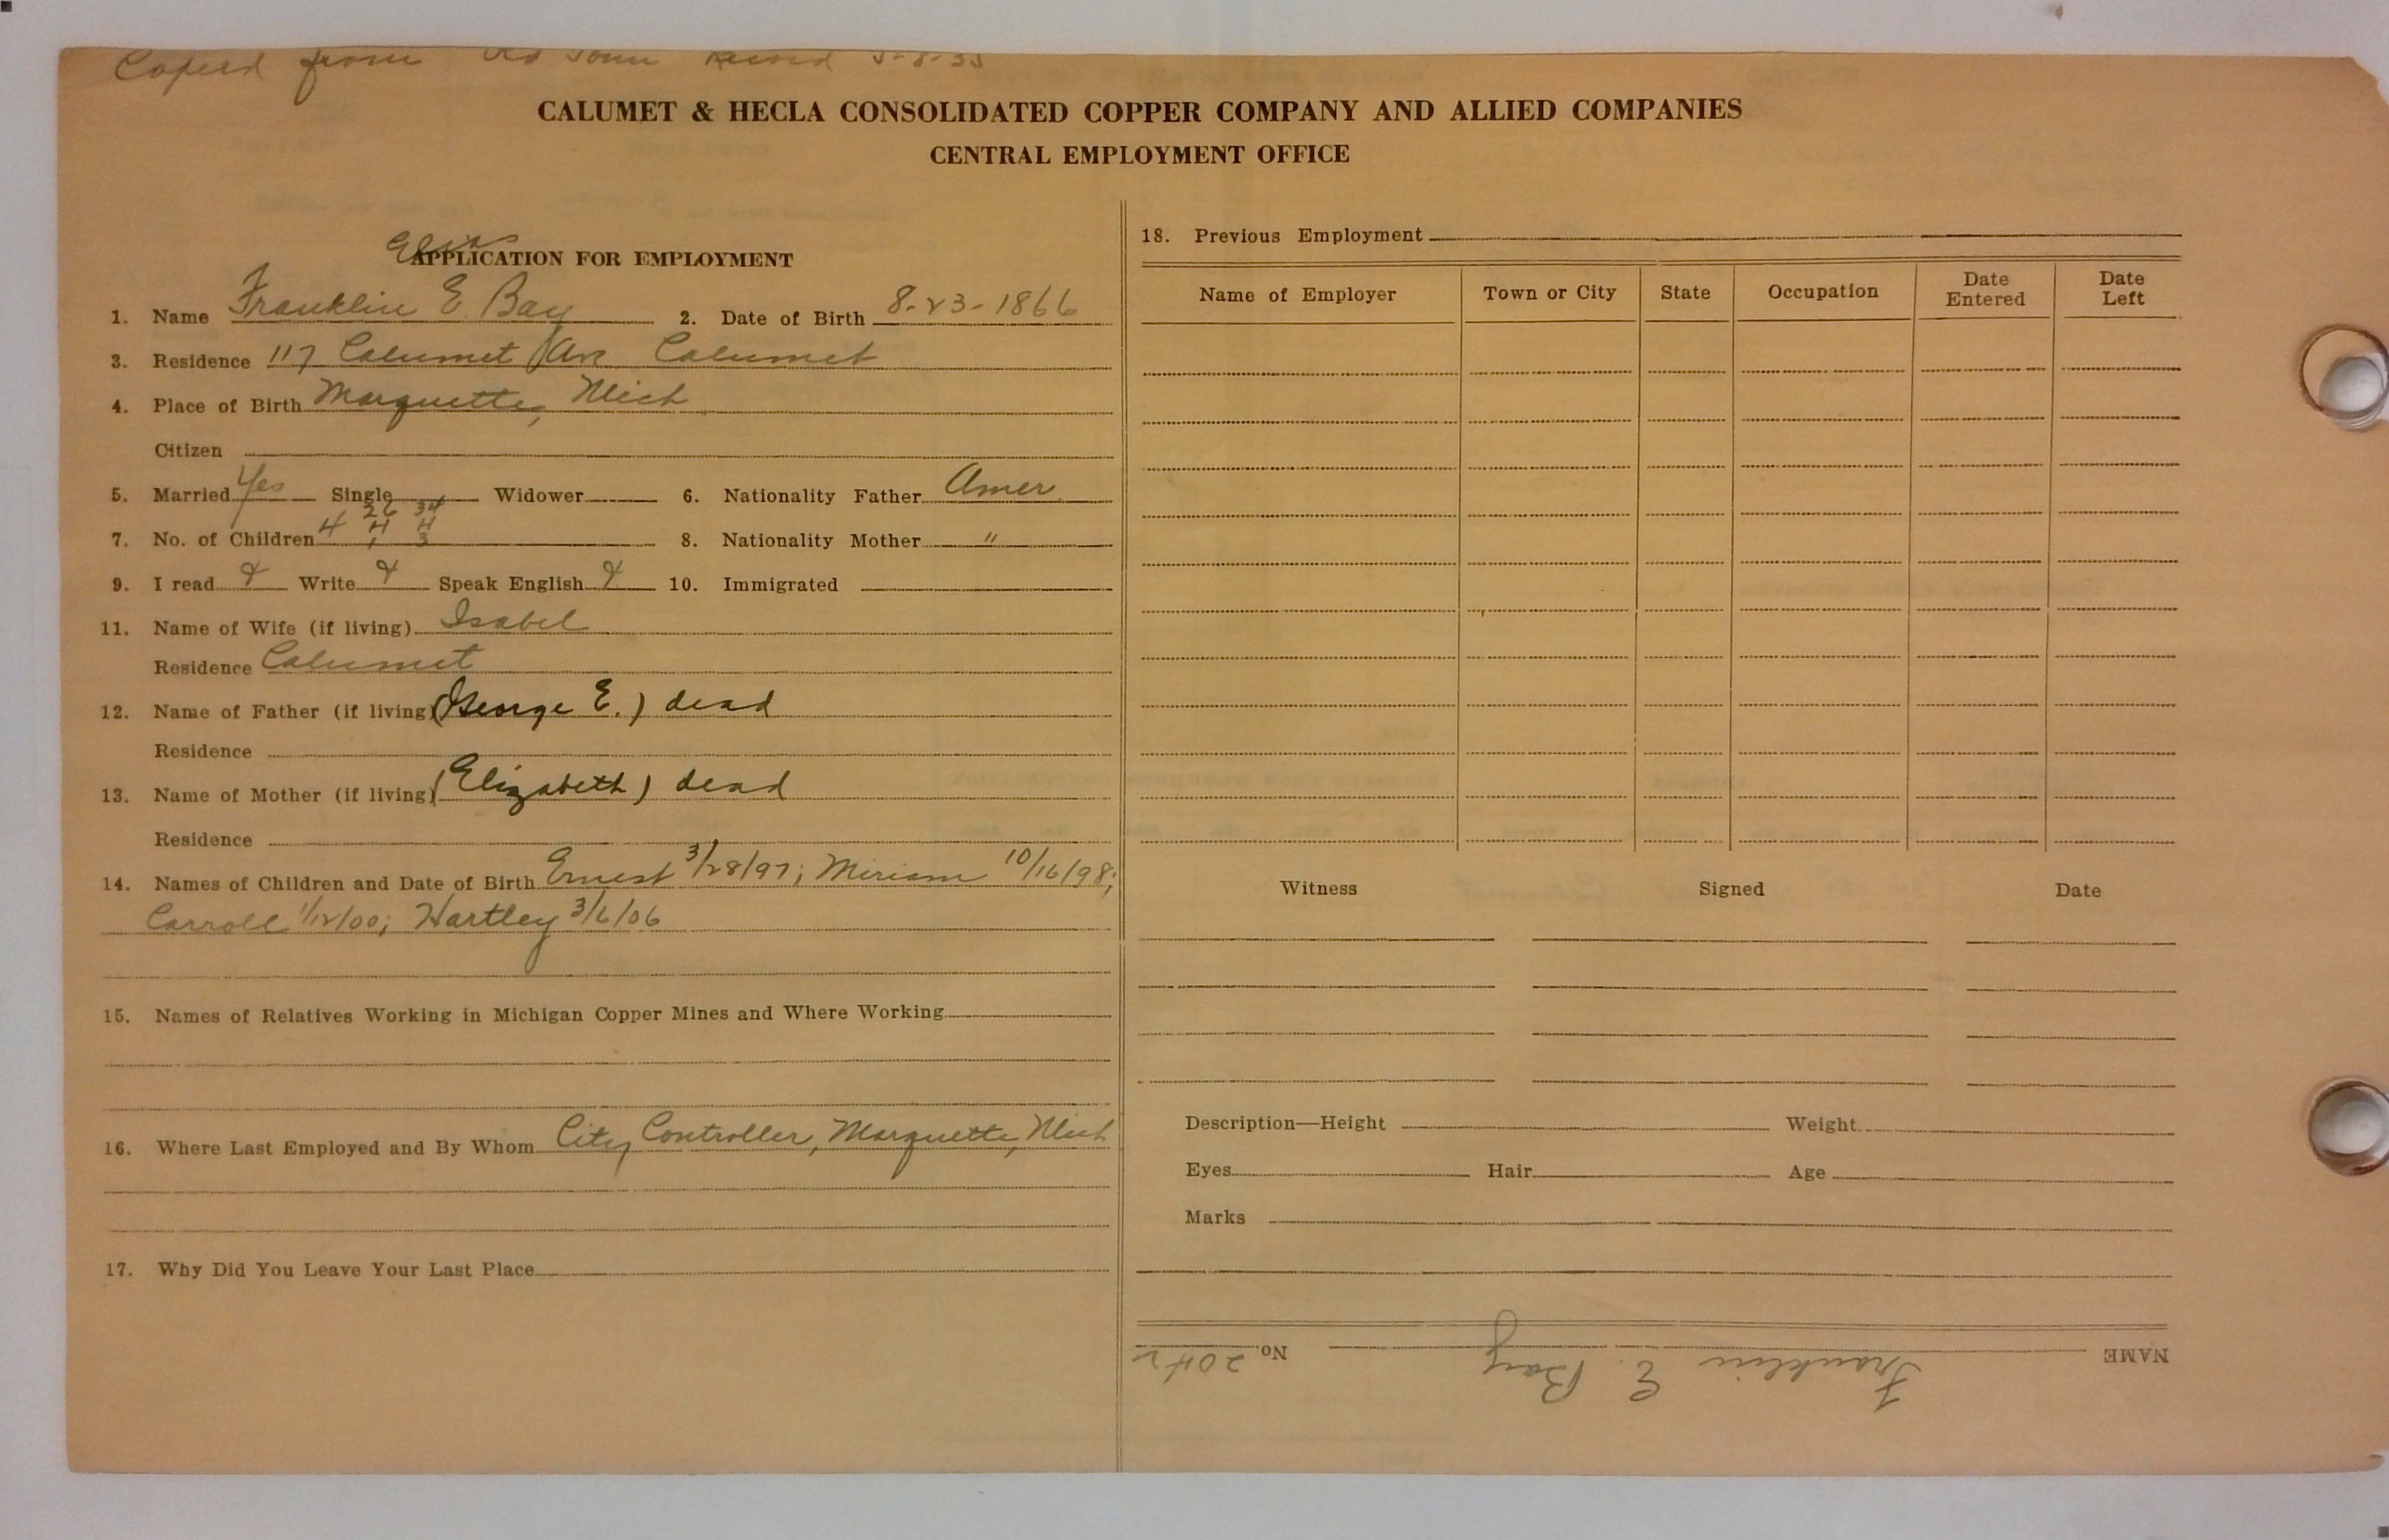 Copied from Old Form Record 5-8-35
CALUMET & HECLA CONSOLIDATED COPPER COMPANY AND ALLIED COMPANIES
CENTRAL EMPLOYMENT OFFICE
Elias
APPLICATION FOR EMPLOYMENT
1. Name Franklin E. Bay 2. Date of Birth 8-23-1866
3. Residence 117 Calumet Ave Calumet
4. Place of Birth Marquette, Mich
Citizen
5. Married Yes Single Widower 6. Nationality Father Amer.
26 34
7. No. of Children 4 4 4 8. Nationality Mother "
1 3
9. I read Y Write Y Speak English Y 10. Immigrated
11. Name of Wife (if living) Isabel
Residence Calumet
12. Name of Father (if living) (George E.) dead
Residence
13. Name of Mother (if living) (Elizabeth) dead
Residence
14. Names of Children and Date of Birth Ernest 3/28/97; Miriam 10/16/98;
Carroll 1/12/00; Hartley 3/6/06
15. Names of Relatives Working in Michigan Copper Mines and Where Working
16. Where Last Employed and By Whom City Controller, Marquette, Mich
17. Why Did You Leave Your Last Place
18. Previous Employment
Name of Employer Town or City State Occupation Date Entered Date Left
Witness Signed Date
Description—Height Weight
Eyes Hair Age
Marks
NAME Franklin E. Bay No. 2042